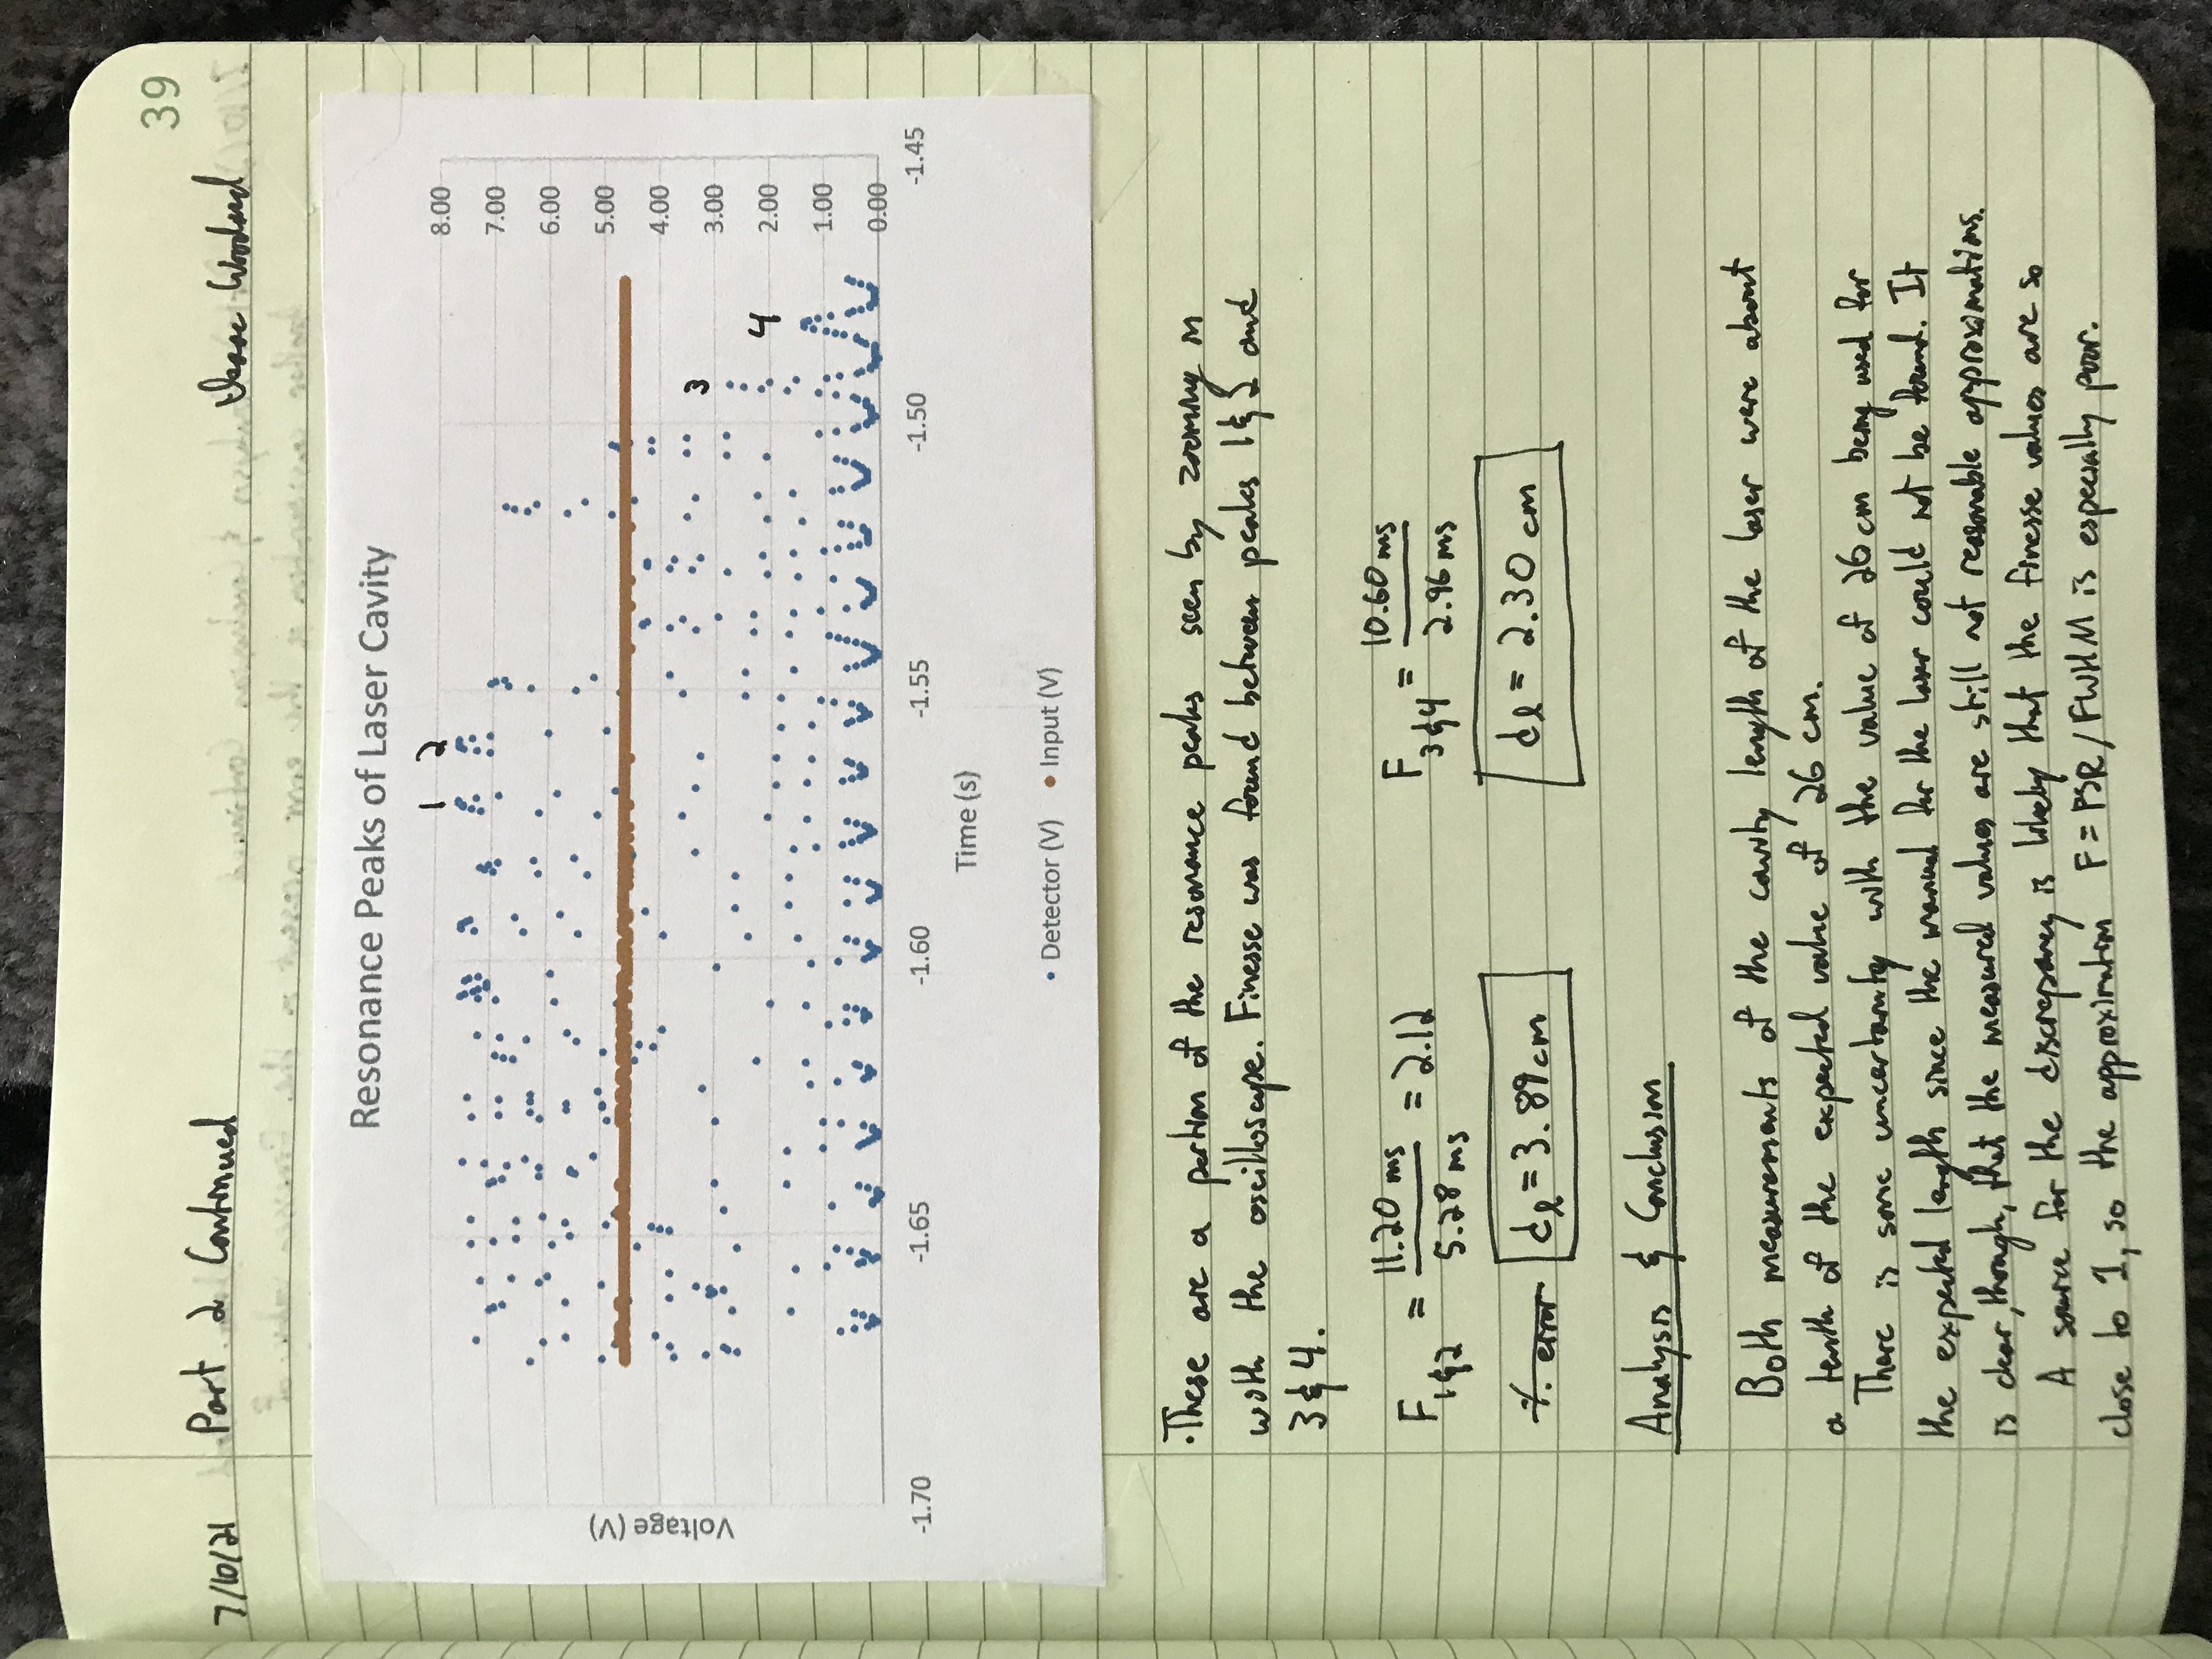 39
7/10/21 Part 2 Continued Isaac Woodard
Resonance Peaks of Laser Cavity
1 2
8.00
7.00
6.00
5.00
4.00
3
3.00
4
2.00
1.00
0.00
Voltage (V)
-1.70 -1.65 -1.60 -1.55 -1.50 -1.45
Time (s)
Detector (V) Input (V)
·These are a portion of the resonance peaks seen by zooming in
with the oscilloscope. Finesse was found between peaks 1&2 and
3&4.
F1&2 = 11.20 ms / 5.28 ms = 2.12 F3&4 = 10.60 ms / 2.96 ms
% error dl = 3.89 cm dl = 2.30 cm
Analysis & Conclusion
Both measurements of the cavity length of the laser were about
a tenth of the expected value of 26 cm.
There is some uncertainty with the value of 26 cm being used for
the expected length since the manual for the laser could not be found. It
is clear, though, that the measured values are still not reasonable approximations.
A source for the discrepancy is likely that the finesse values are so
close to 1, so the approximation F = FSR/FWHM is especially poor.